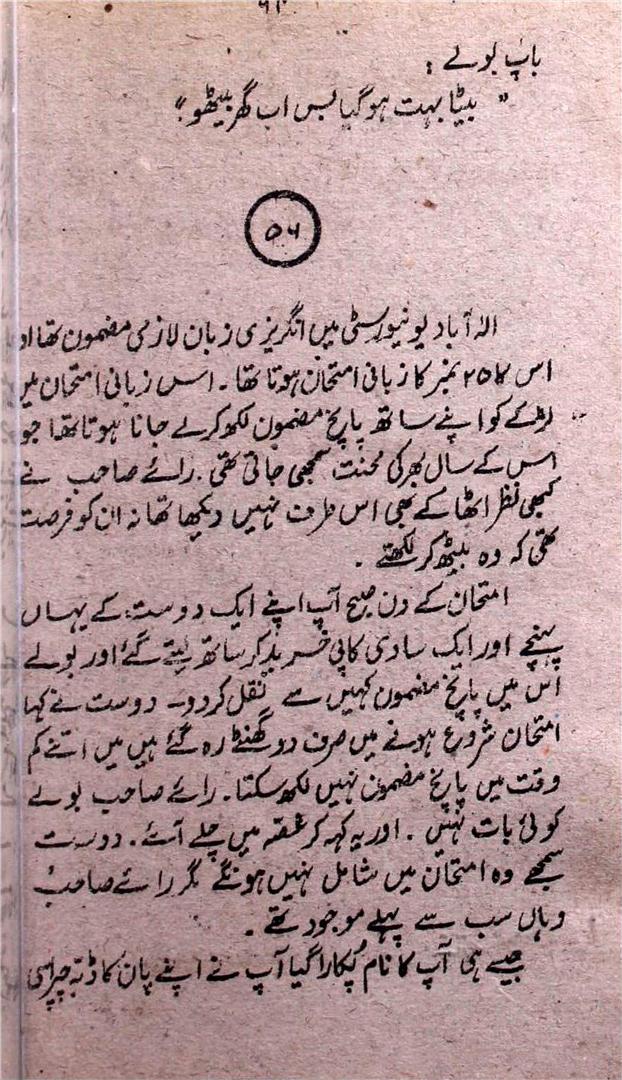 باپ بولے :
" بیٹا بہت ہوگیا بس اب گھر بیٹھو "
۵۶
الہ آباد یونیورسٹی میں انگریزی زبان لازمی مضمون تھا او
اس ۲۵ نمبر کا زبانی امتحان ہوتا تھا ۔ اس زبانی امتحان میں
لڑکے کو اپنے ساتھ پانچ مضمون لکھ کر لے جانا ہوتا تھا جو
اس کے سال بھر کی محنت سمجھی جاتی تھی ۔ رائے صاحب نے
کبھی نظر اٹھا کے بھی اس طرف نہیں دیکھا تھا نہ ان کو فرصت
تھی کہ وہ بیٹھ کر لکھتے ۔
امتحان کے دن صبح آپ اپنے ایک دوست کے یہاں
پہنچے اور ایک سادی کاپی خرید کر ساتھ لیتے گئے اور بولے
اس میں پانچ مضمون کہیں سے نقل کر دو ۔ دوست نے کہا
امتحان شروع ہونے میں صرف دو گھنٹے رہ گئے ہیں میں اتنے کم
وقت میں پانچ مضمون نہیں لکھ سکتا ۔ رائے صاحب بولے
کوئی بات نہیں ۔ اور یہ کہہ کر غصہ میں چلے آئے ۔ دوست
سمجھے وہ امتحان میں شامل نہیں ہونگے مگر رائے صاحب
وہاں سب سے پہلے موجود تھے ۔
جیسے ہی آپ کا نام پکارا گیا آپ نے اپنے پان کا ڈبہ چپراسی